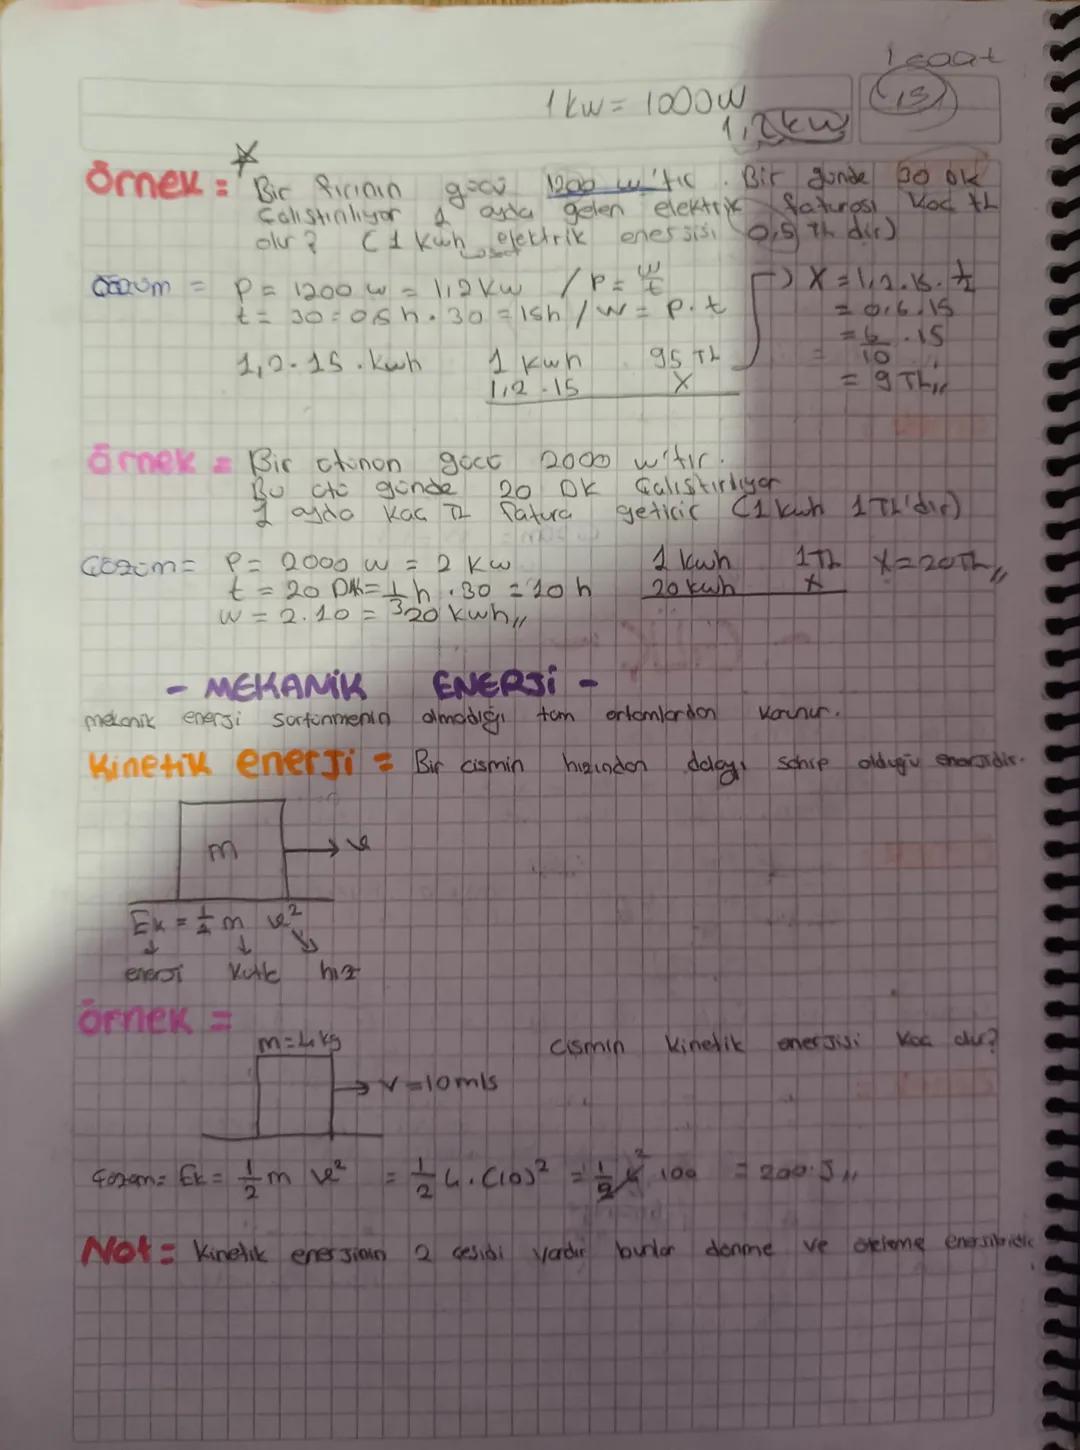 1 saat
15
1 kw = 1000W
1,2kw
Örnek = Bir fırının gücü 1200 w'tır. Bir günde 30 DK
Çalıştırılıyor 1 ayda gelen elektrik faturası kaç tL
olur? (1 kwh elektrik enerjisi 0,5 TL dir)
Çözüm = P = 1200 w = 1,2 Kw / P = w/t
t = 30 = 0,5 h . 30 = 15h / w = P.t
1,2.15.kwh
1 kwh 95 TL
1,2.15 X
X = 1,2.15.1/2
= 0,6.15
= 6/10 .15
= 9 TL,,
Örnek = Bir ütünün gücü 2000 w'tır.
Bu ütü günde 20 DK Çalıştırılıyor
1 ayda kaç TL fatura getirir (1 kwh 1 TL'dir)
Çözüm = P = 2000 w = 2 Kw
t = 20 DK = 1/3 h . 30 = 10 h
w = 2.10 = 20 kwh,,
1 kwh 1TL
20 kwh X
X = 20TL,,
- MEKANİK ENERJİ -
mekanik enerji sürtünmenin olmadığı tüm ortamlardan korunur.
Kinetik enerji = Bir cismin hızından dolayı sahip olduğu enerjidir.
m
v
Ek = 1/2 m v²
enerji kütle hız
Örnek =
m=4kg
v=10m/s
cismin kinetik enerjisi kaç dır?
Çözüm = Ek = 1/2 m v² = 1/2 4.(10)² = 1/2 4 100 = 200 J,,
Not = Kinetik enerjinin 2 çeşidi vardır bunlar dönme ve öteleme enerjileridir